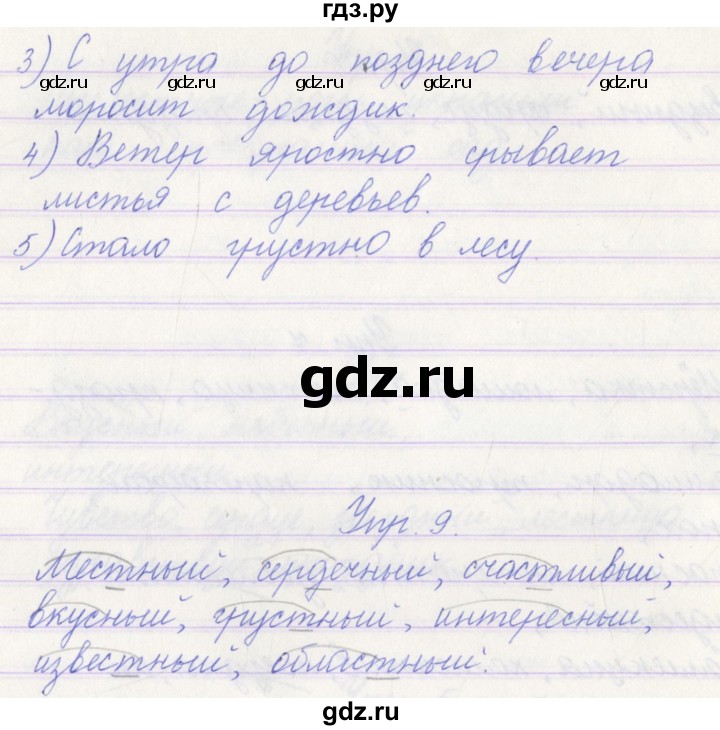 гдз.ру
3) С утра до позднего вечера
gdz.ru gdz.ru gdz.ru gdz.ru
моросит дождик.
4) Ветер яростно срывает
gdz.ru gdz.ru gdz.ru gdz.ru
листья с деревьев.
5) Стало грустно в лесу.
gdz.ru
Упр. 9.
Местный, сердечный, счастливый,
вкусный, грустный, интересный,
известный, областный.
gdz.ru